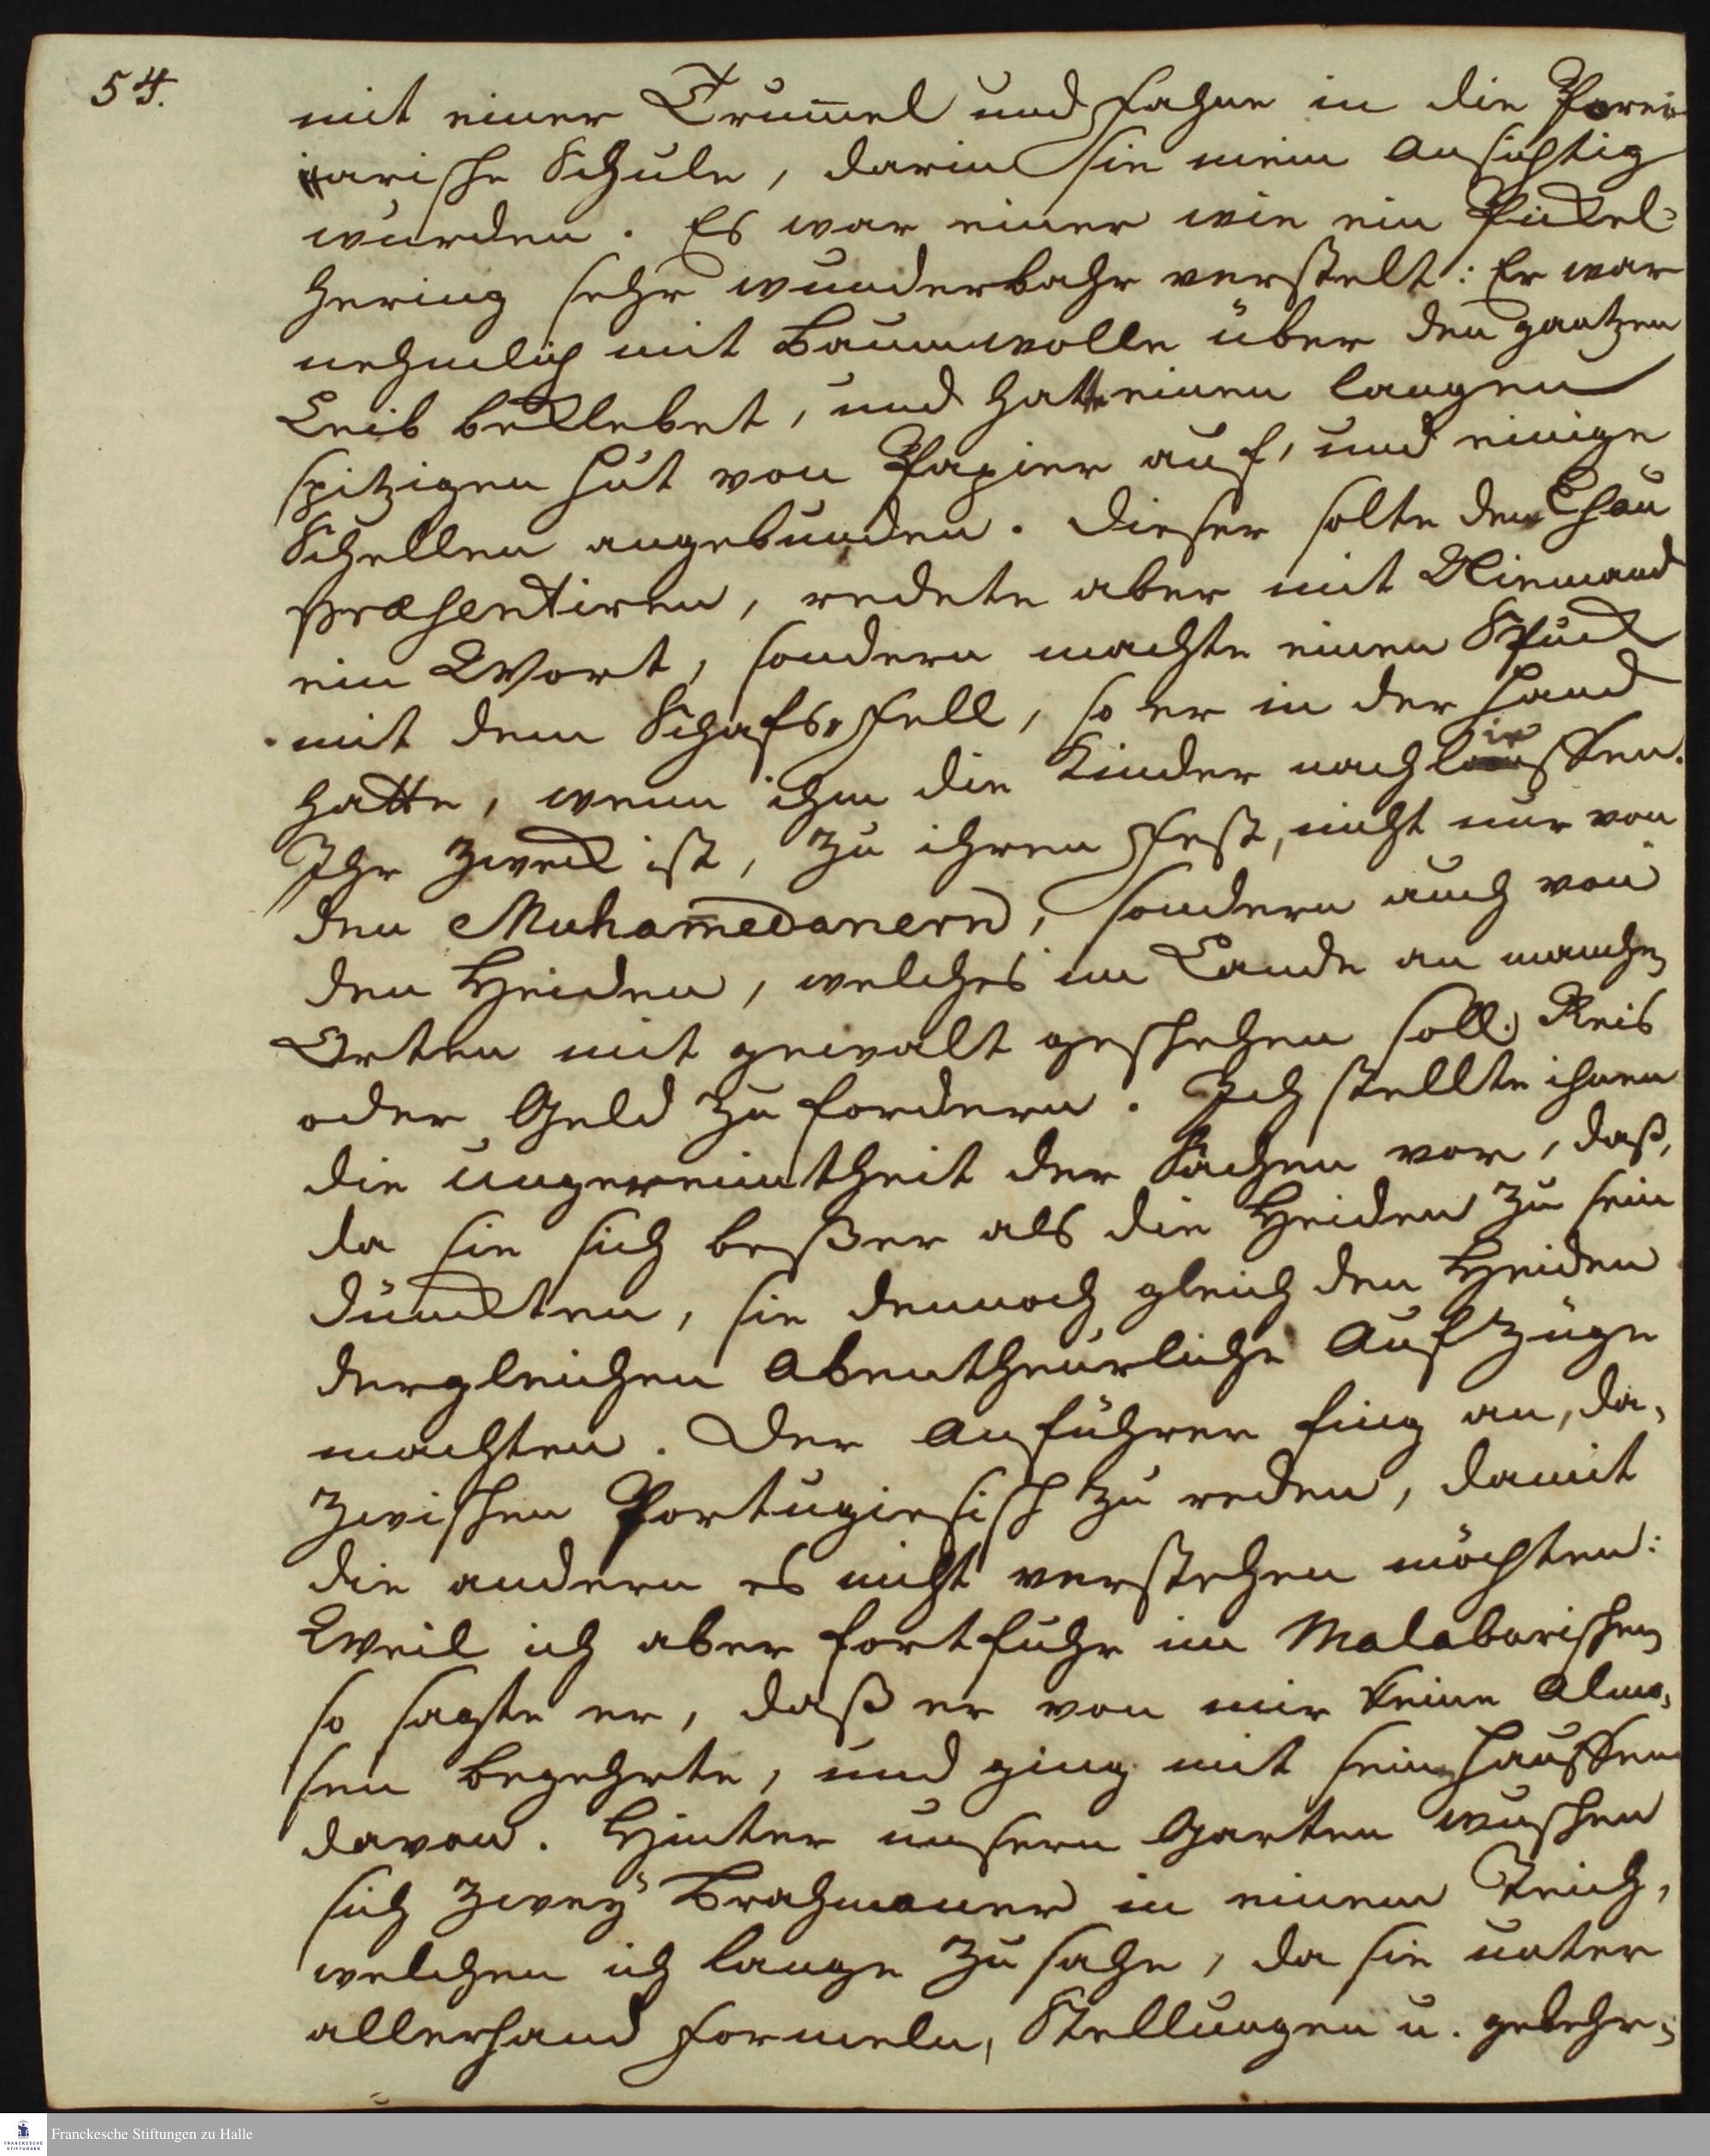 54.
mit einer Trum̅el und Fahne in die Porei-
jarische Schule, darin sie mein ansichtig
wurden. Es war einer wie ein Pickel-
Hering sehr wunderbahr verstelt: Er war
nehmlich mit Baumwolle über den gantzen
Leib beklebet, und hatte einen langen
spitzigen Hut von Papier auf, und einige
Schellen angebunden. Dieser solte den
præsentiren, redete aber mit Niemand
ein Wort, sondern machte einen Spuck
mit dem Schafs-Fell, so er in der Hand
hatte, wenn ihm die Kinder nachlieffen.
Ihr Zweck ist, zu ihrem Fest, nicht nur von
den Muham̅edanern, sondern auch von
den Heiden, welches im Lande an manchen
Orten mit gewalt geschehen soll, Reis
oder Geld zu fordern. Ich stellte ihnen
die ungereimtheit der Sachen vor, daß,
da sie sich beßer als die Heiden zu sein
dünckten, sie dennoch gleich den Heiden
dergleichen Abentheurliche Aufzüge
machten. Der Anführer fing an, da-
zwischen Portugiesisch zu reden, damit
die andern es nicht verstehen möchten:
Weil ich aber fortfuhr im Malabarischen
so sagte er, daß er von mir keine Almo-
sen begehrte, und ging mit sein Hauffen
davon. Hinter unserm Garten wuschen
sich zwey Brahmaner in einem Teich,
welchen ich lange zu sahe, da sie unter
allerhand Formeln, Stellungen u. gebehr-
Franckesche Stiftungen zu Halle